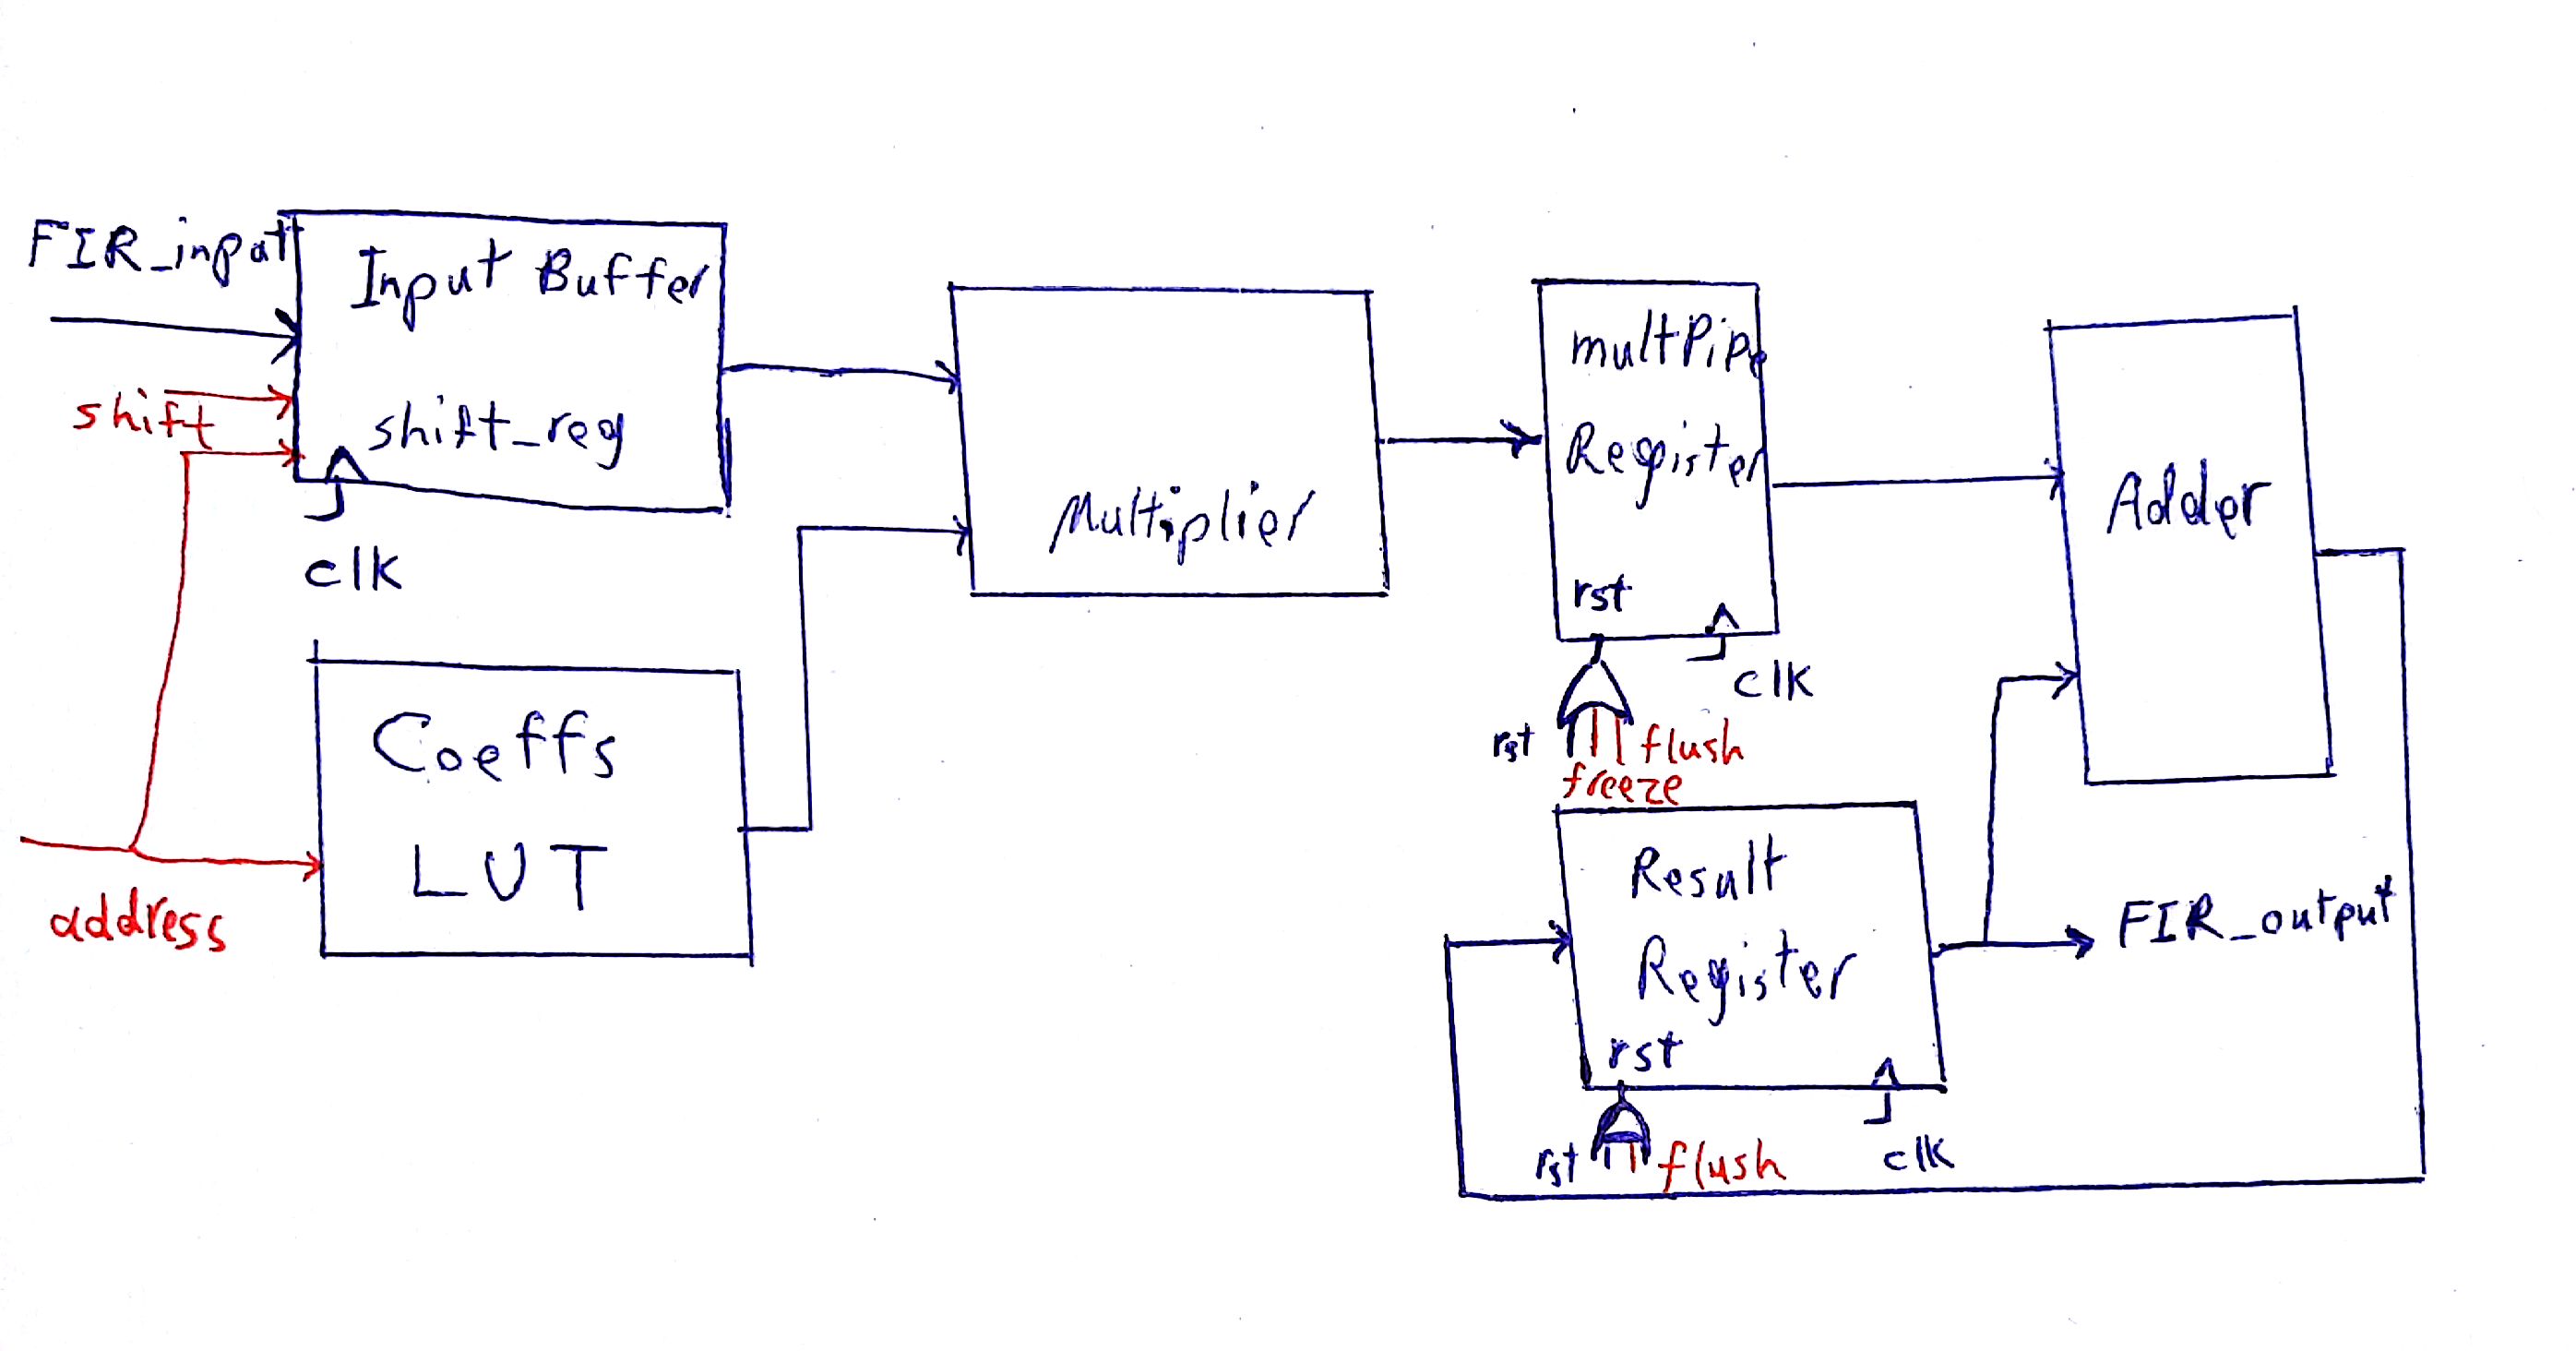 FIR_input
Input Buffer
shift_reg
shift
clk
Coeffs
LUT
address
Multiplier
multPipe
Register
rst
clk
rst
freeze
flush
Adder
Result
Register
rst
rst
flush
clk
FIR_output